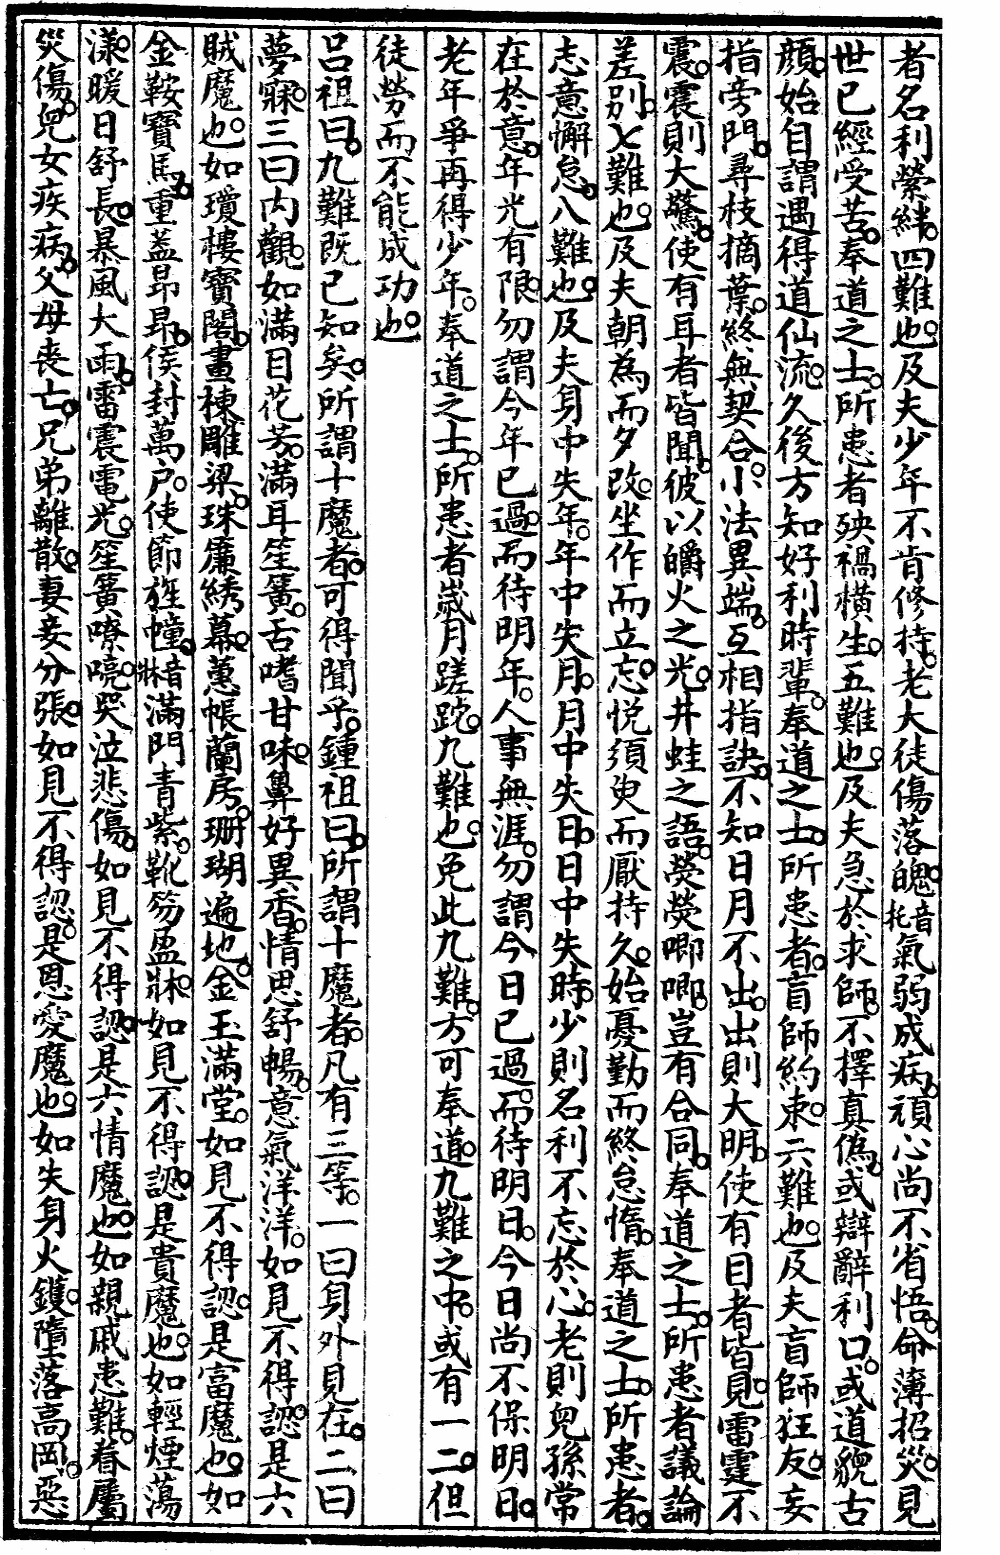 者名利縈絆四難也及夫少年不肯修持老大徒傷落魄音托氣弱成病頑心尚不省悟命薄招災見
世已經受苦奉道之士所患者殃禍橫生五難也及夫急於求師不擇真僞或辯辭利口或道貌古
顏始自謂遇得道仙流久後方知好利時輩奉道之士所患者盲師約束六難也及夫盲師狂友妄
指旁門尋枝摘葉終無契合小法異端互相指訣不知日月不出出則大明使有目者皆見雷霆不
震震則大驚使有耳者皆聞彼以爝火之光井蛙之語熒熒唧唧豈有合同奉道之士所患者議論
差别七難也及夫朝為而夕改坐作而立忘悅須臾而厭持久始憂勤而終怠惰奉道之士所患者
志意懈怠八難也及夫身中失年年中失月月中失日日中失時少則名利不忘於心老則兒孫常
在於意年光有限勿謂今年已過而待明年人事無涯勿謂今日已過而待明日今日尚不保明日
老年爭再得少年奉道之士所患者嵗月蹉跎九難也免此九難方可奉道九難之中或有一二但
徒勞而不能成功也
呂祖曰九難既已知矣所謂十魔者可得聞乎鍾祖曰所謂十魔者凡有三等一曰身外見在二曰
夢寐三曰内觀如滿目花芳滿耳笙簧舌嗜甘味鼻好異香情思舒暢意氣洋洋如見不得認是六
賊魔也如瓊樓寳閣畫棟雕梁珠簾綉幕蕙帳蘭房珊瑚遍地金玉滿堂如見不得認是富魔也如
金鞍寳馬重蓋昂昂侯封萬户使節旌幢音牀滿門青紫靴笏盈牀如見不得認是貴魔也如輕煙蕩
漾暖日舒長暴風大雨雷震電光笙簧嘹喨哭泣悲傷如見不得認是六情魔也如親戚患難眷屬
災傷兒女疾病父母喪亡兄弟離散妻妾分張如見不得認是恩愛魔也如失身火鑊墮落高岡惡